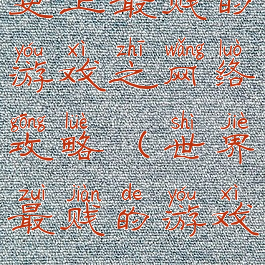 史上最贱的
yóu xì zhī wǎng luò
游戏之网络
gōng lüè shì jiè
攻略（世界
zuì jiàn de yóu xì
最贱的游戏